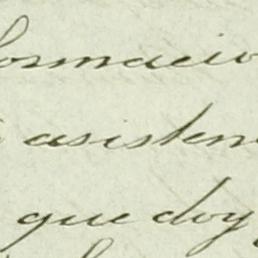 formacio
asisten
que doy